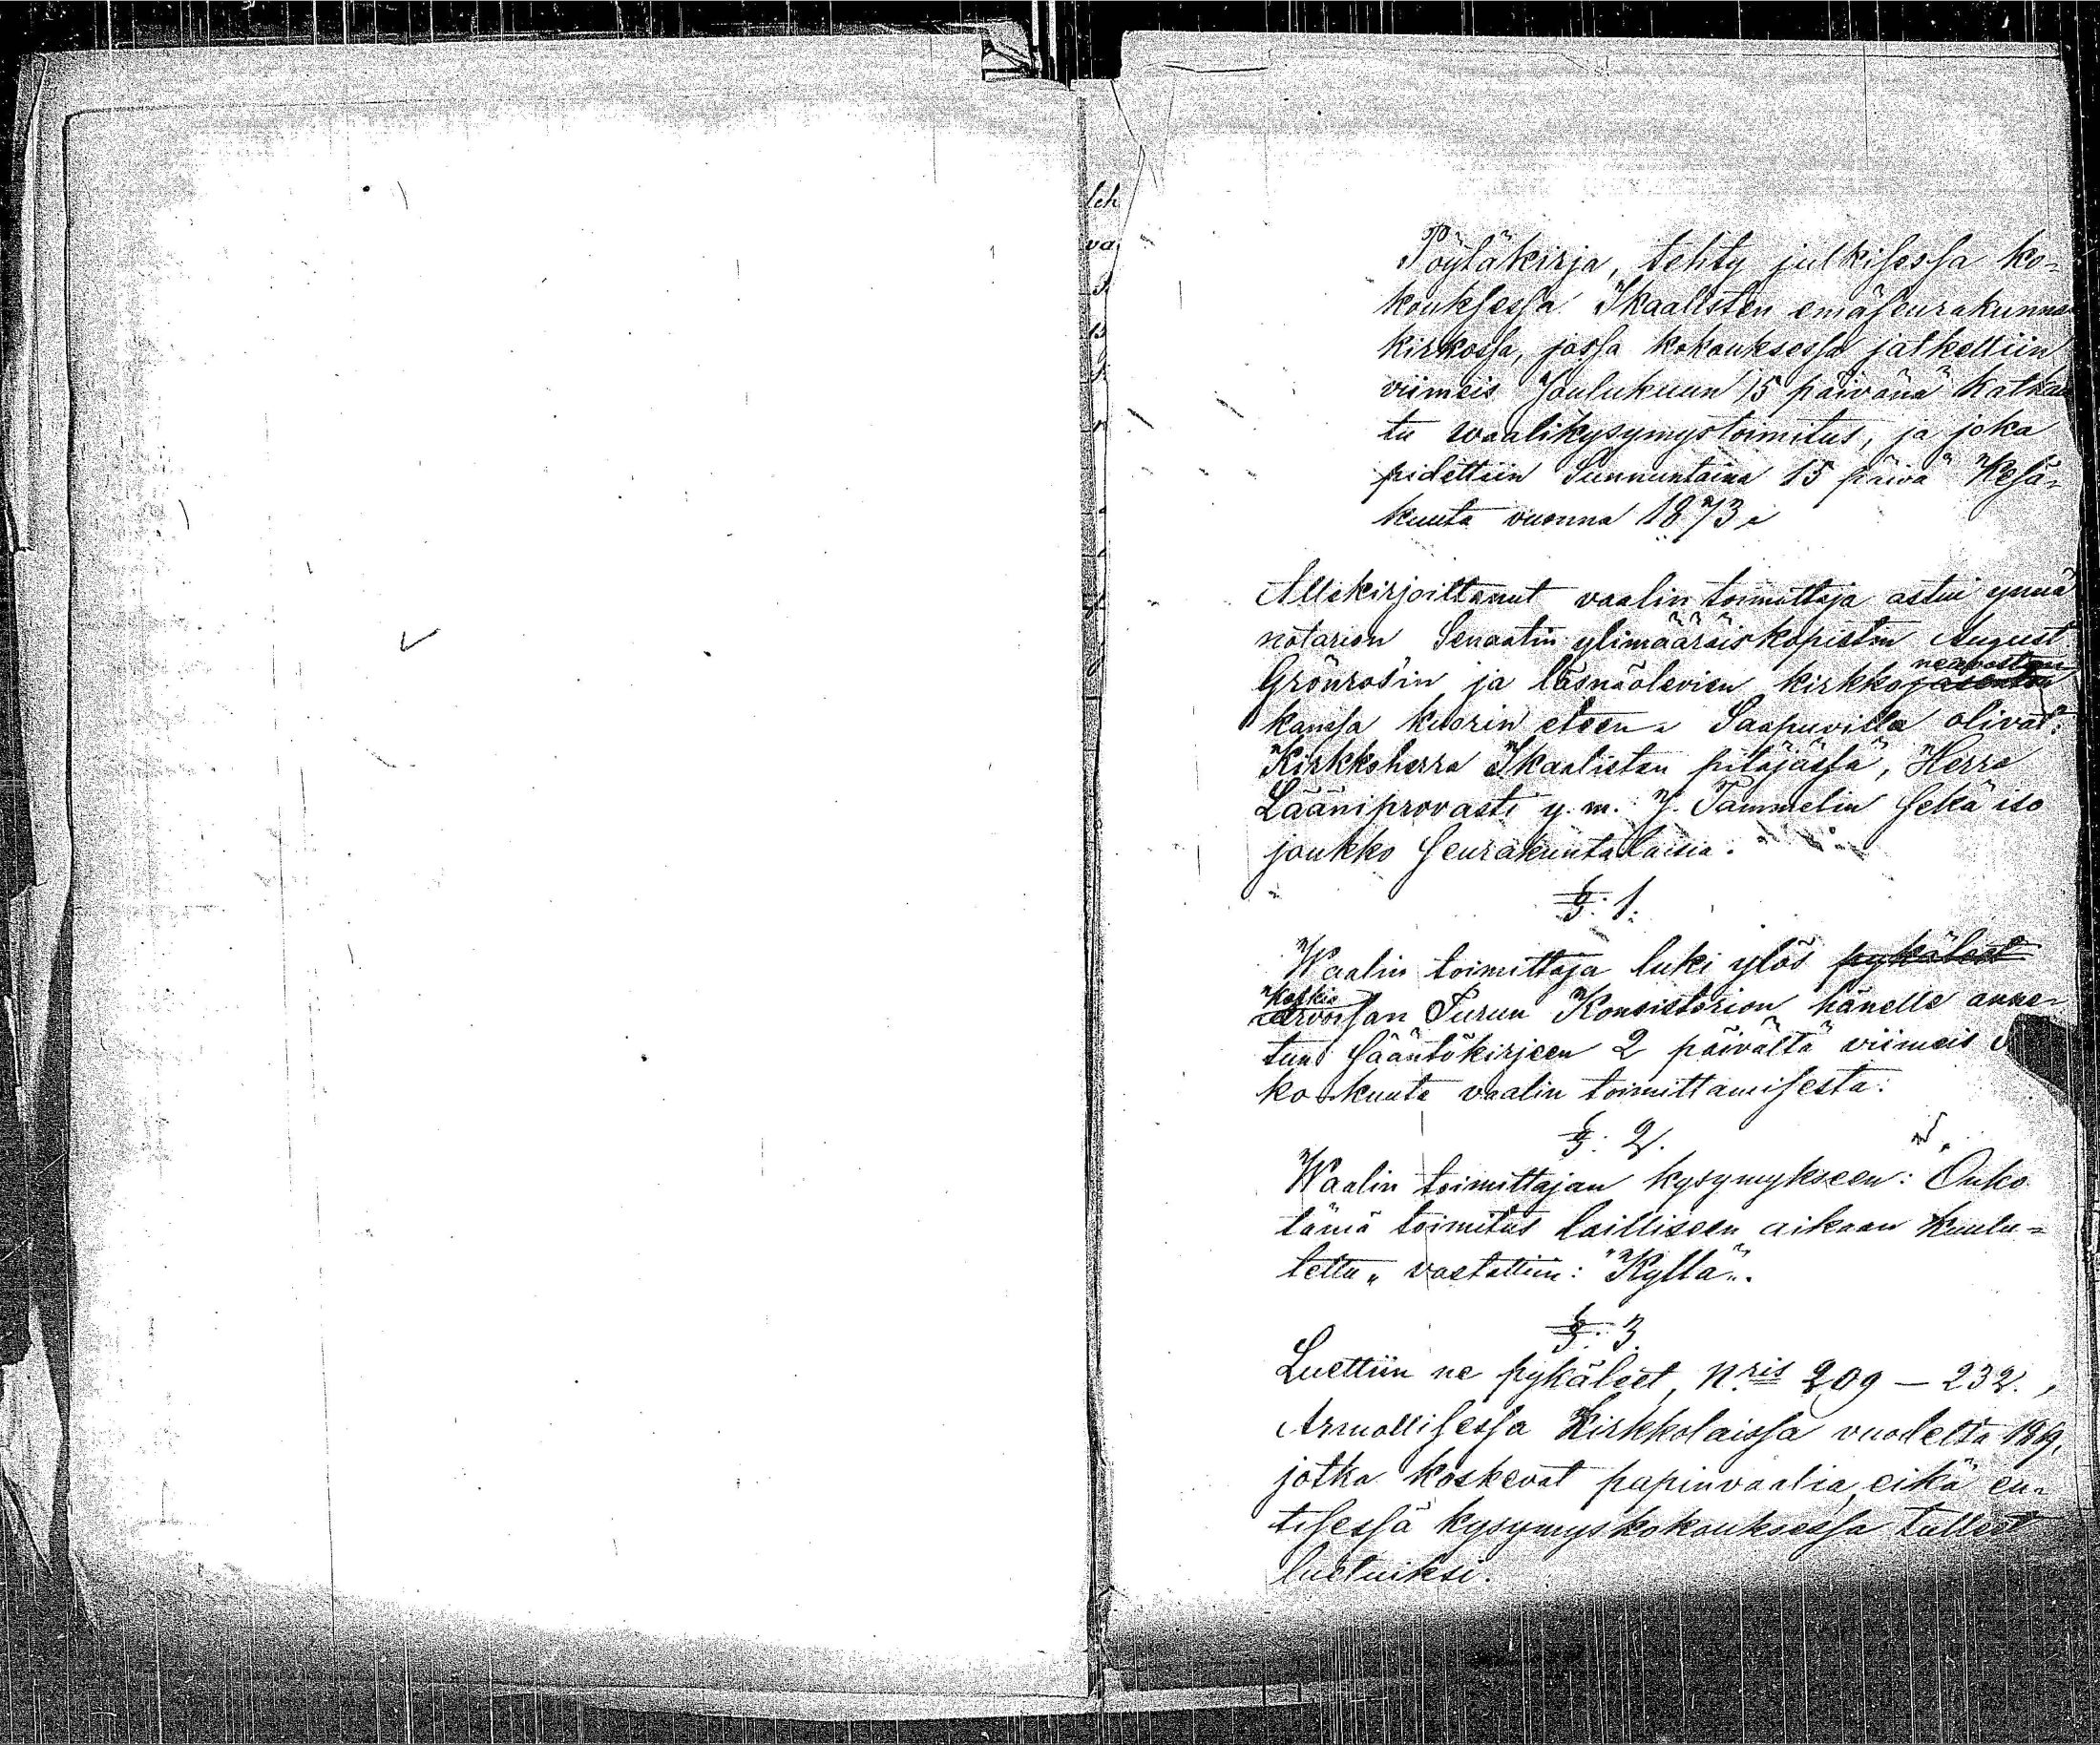 Pöytäkirja, tehty julkisessa ko-
kouksessa Ikaalisten emäseurakunnan
kirkossa, jossa kokouksessa jatkettiin
viimeis Joulukuun 15 päivänä katkais
tu waalikysymystoimitus, ja joka
pidettiin Sunnuntaina 15 päivä Kesä-
kuuta vuonna 1873.
Allekirjoittanut vaalin toimittaja astui ynnä
notarion Senaatin ylimääräis kopistin August
Grönros'in ja läsnäolevien kirkko neuvoston
kanssa kuorin eteen. Saapuvilla olivat:
Kirkkoherra Ikaalisten pitäjässä, Herra
Lääniprovasti y. m. J. Tammelin sekä iso
joukko seurakuntalaisia.
§: 1.
Waalin toimittaja luki ylös pykäleet
Korkia arvoisan Turun Konsistorion hänelle anne-
tun sääntökirjeen 2 päivältä viimeis
ko kuuta vaalin toimittamisesta:
§: 2.
Waalin toimittajan kysymykseen: Onko
tämä toimitus lailliseen aikaan kuulu-
tettu" vastattiin: "Kyllä".
§: 3.
Luettiin ne pykäleet, Nris 209 — 232.,
Armollisessa Kirkkolaissa vuodelta 1869,
jotka koskevat papinvaalia, eikä en-
tisessä kysymyskokouksessa tulleet
luetuiksi.